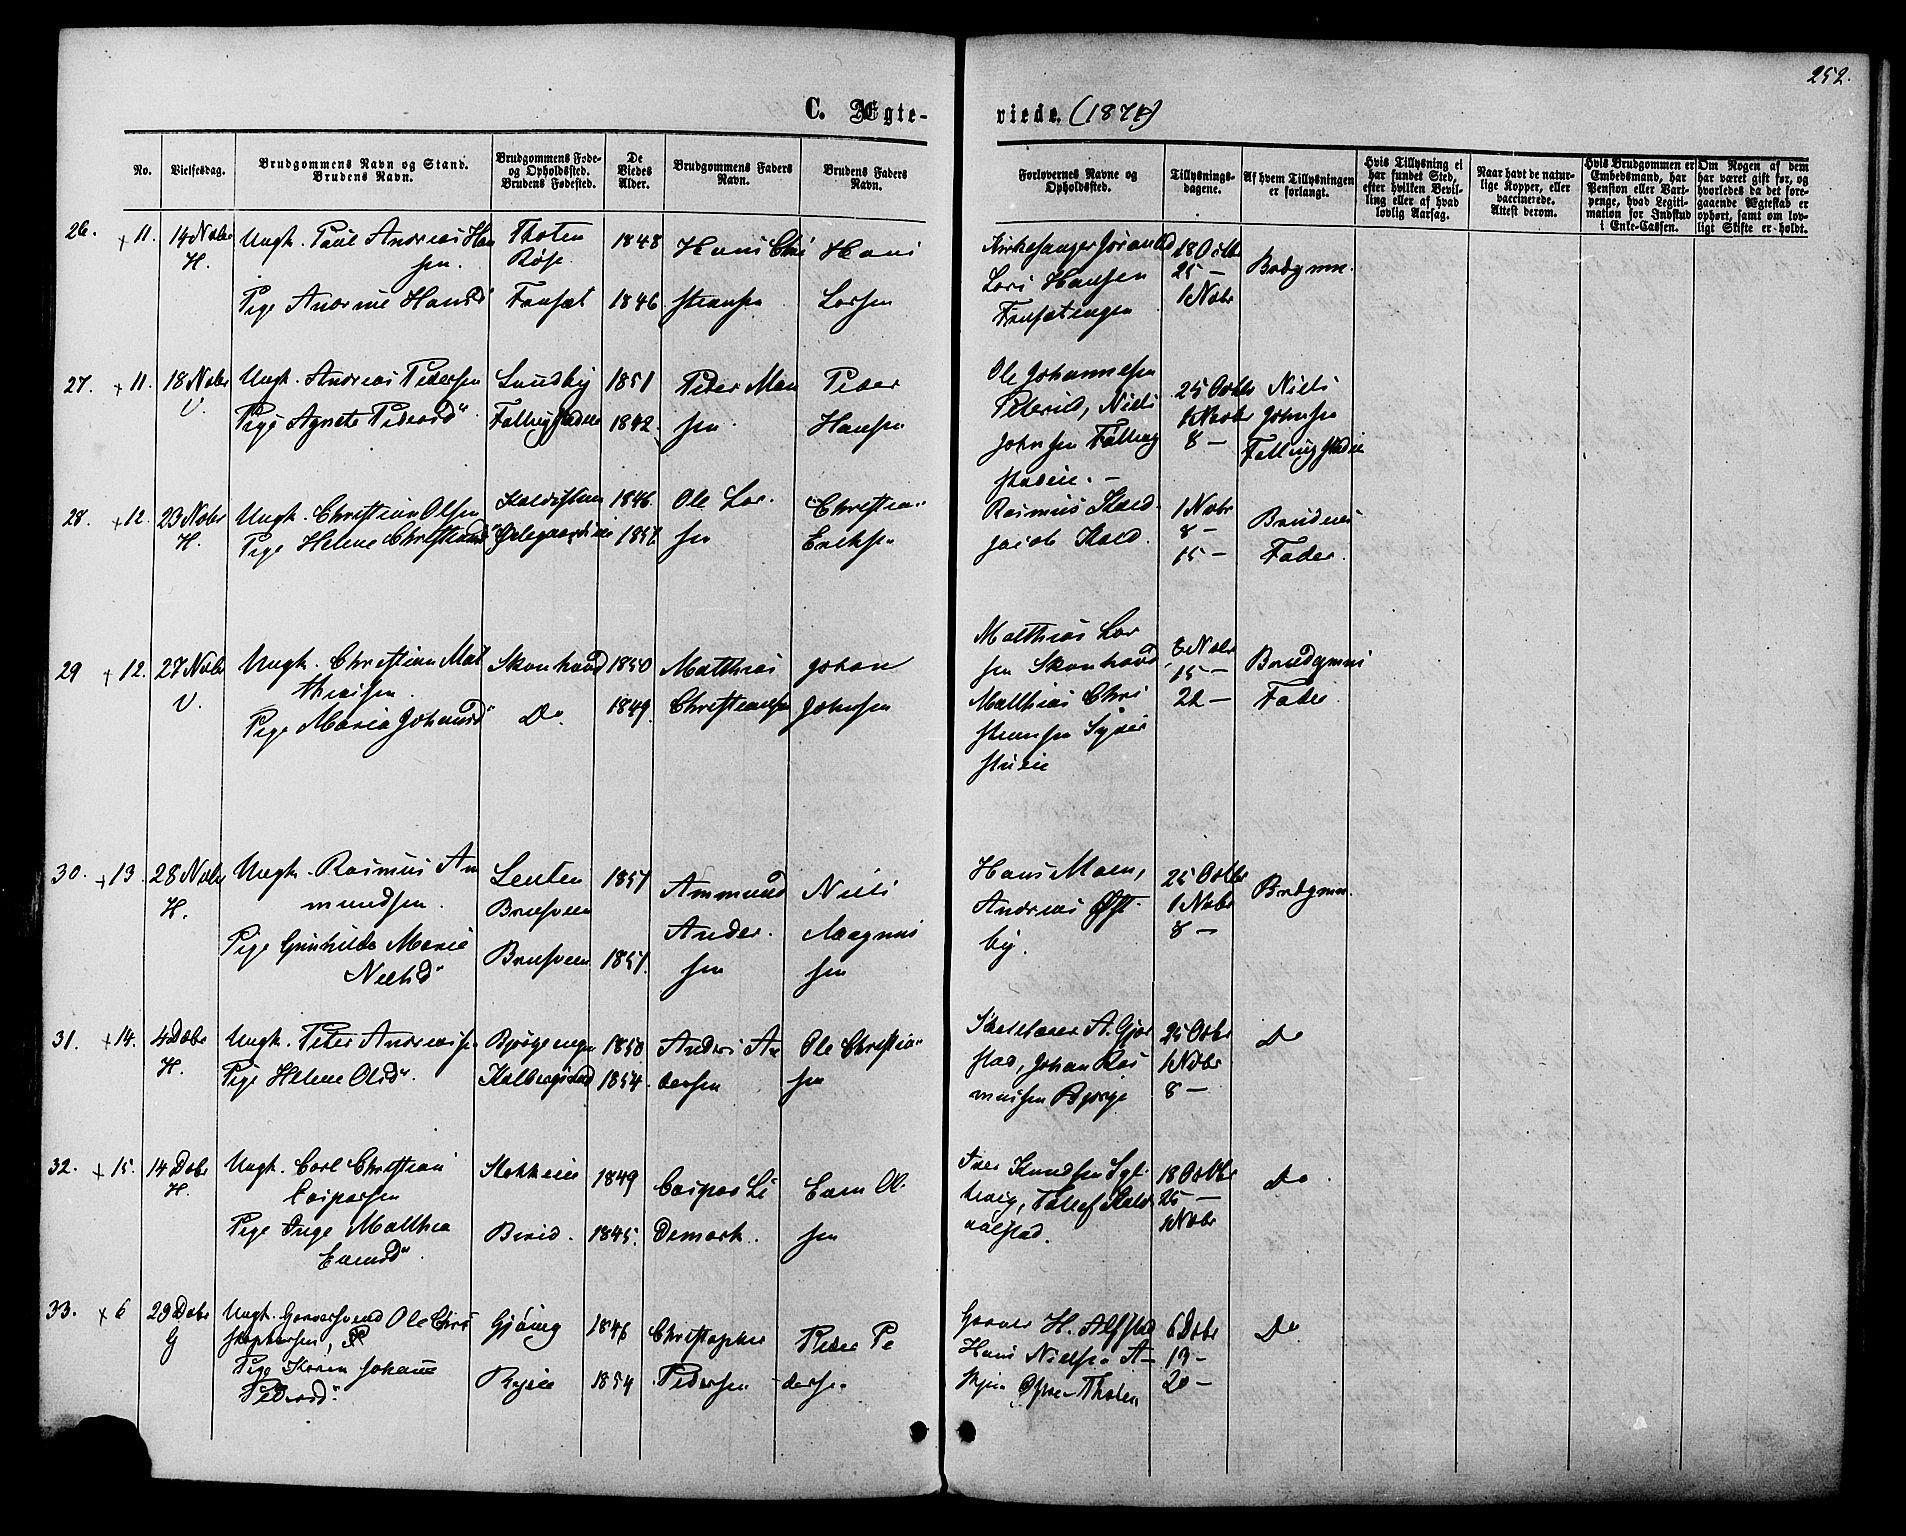 252.
C. Ægte-
viede. (1874)
No.
Vielsesdag.
Brudgommens Navn og Stand.
Brudens Navn.
Brudgommens Føde-
og Opholdssted.
Brudens Fødested.
De
Viedes
Alder.
Brudgommens Faders
Navn.
Brudens Faders
Navn.
Forlovernes Navne og
Opholdssted.
Tillysnings-
dagene.
Af hvem Tillysningen
er forlangt.
Hvis Tillysning ei
har fundet Sted,
efter hvilken Bevil-
ling eller af hvad
lovlig Aarsag.
Naar havt de natur-
lige Kopper, eller
vaccinerede.
Attest derom.
Hvis Brudgommen er
Embedsmand, har
Pension eller Vart-
penge, hvad Legiti-
mation for Indskud
i Enke-Cassen.
Om Nogen af dem
har været gift før, og
hvorledes da det fore-
gaaende Ægteskab er
ophørt, samt om lov-
ligt Skifte er holdt.
26. + 11. 14 Nobr
H.
Ungk. Paul Andreas Han
sen.
Pige Andrine Hansd"
Thoten
Røse
Faasæt
1848
1846
Hans Chri
stiansen
Hans
Larsen
Kirkesanger Jørand
Lars Hansen
18 Octbr
25 –
1 Nobr
Brdgmn.
27. + 11. 18 Nobr
V.
Ungk. Andreas Pedersen
Pige Agnete Pedersd".
Sundby
1851
1842.
Peder Man
sen.
Peder
Hansen
Ole Johannesen
Niels
Johnsen
25 Octbr
1 Nobr
8 –
Niels
Johnsen
28. + 12. 23 Nobr
H.
Ungk. Christian Olsen
Pige Helene Christiansd"
1846.
Ole Lar.
sen
Christian
Eriksen
Rasmus Kald.
Jacob Kald.
1 Nobr
8 –
15 –
Brudens
Fader.
29 + 12. 27 Nobr
V.
Ungk. Christian Mat
thiasen.
Pige Maria Johansd"
Skonhovd
Do
1850
1849.
Matthias
Christiansen
Johan
Johnsen
Matthias Lar
sen Skonhovd
Matthias Chri
stiansen
8 Nobr
15 –
22 –
Brudgmns
Fader.
30. + 13. 28 Nobr
H.
Ungk. Rasmus Am
mundsen.
Pige Gunhilde Marie
Nielsd"
Lenten
Brusveen
Brusveen
1851
1851.
Ammund
Ander.
sen
Niels
Magnus
sen
Hans Moen,
Andreas Øst-
by.
25 Octbr
1 Nobr
8 –
Brdgmn.
31. + 14. 4 Debr
H.
Ungk. Peter Andreasen
Pige Helene Olsd".
1850
1854.
Anders An
dersen
Ole Christian
sen
Skolelærer A. Gjør
stad, Johan Ras
mussen Bjørge
25 Octbr
1 Nobr
8 –
Do
32. + 15. 14 Debr
H.
Ungk. Carl Christian
Caspersen
Pige Inge Matthea
Evensd".
Stokkeie
Birid.
1849
1845.
Casper Li
Demark.
Even Ol.
sen
Iver Knudsen
18 Octbr
25 –
1 Nobr
Do
33. + 6 29 Debr
G
Ungk. Garversvend Ole Chri
stophersen,
Pige Karen Johanne
Pedersd".
Gjøvig
1846
1854
Christopher
Pedersen
Peder Pe
dersen
Garver H. Alfstad
Hans Nielsen
6 Debr
13 –
20 –
Do